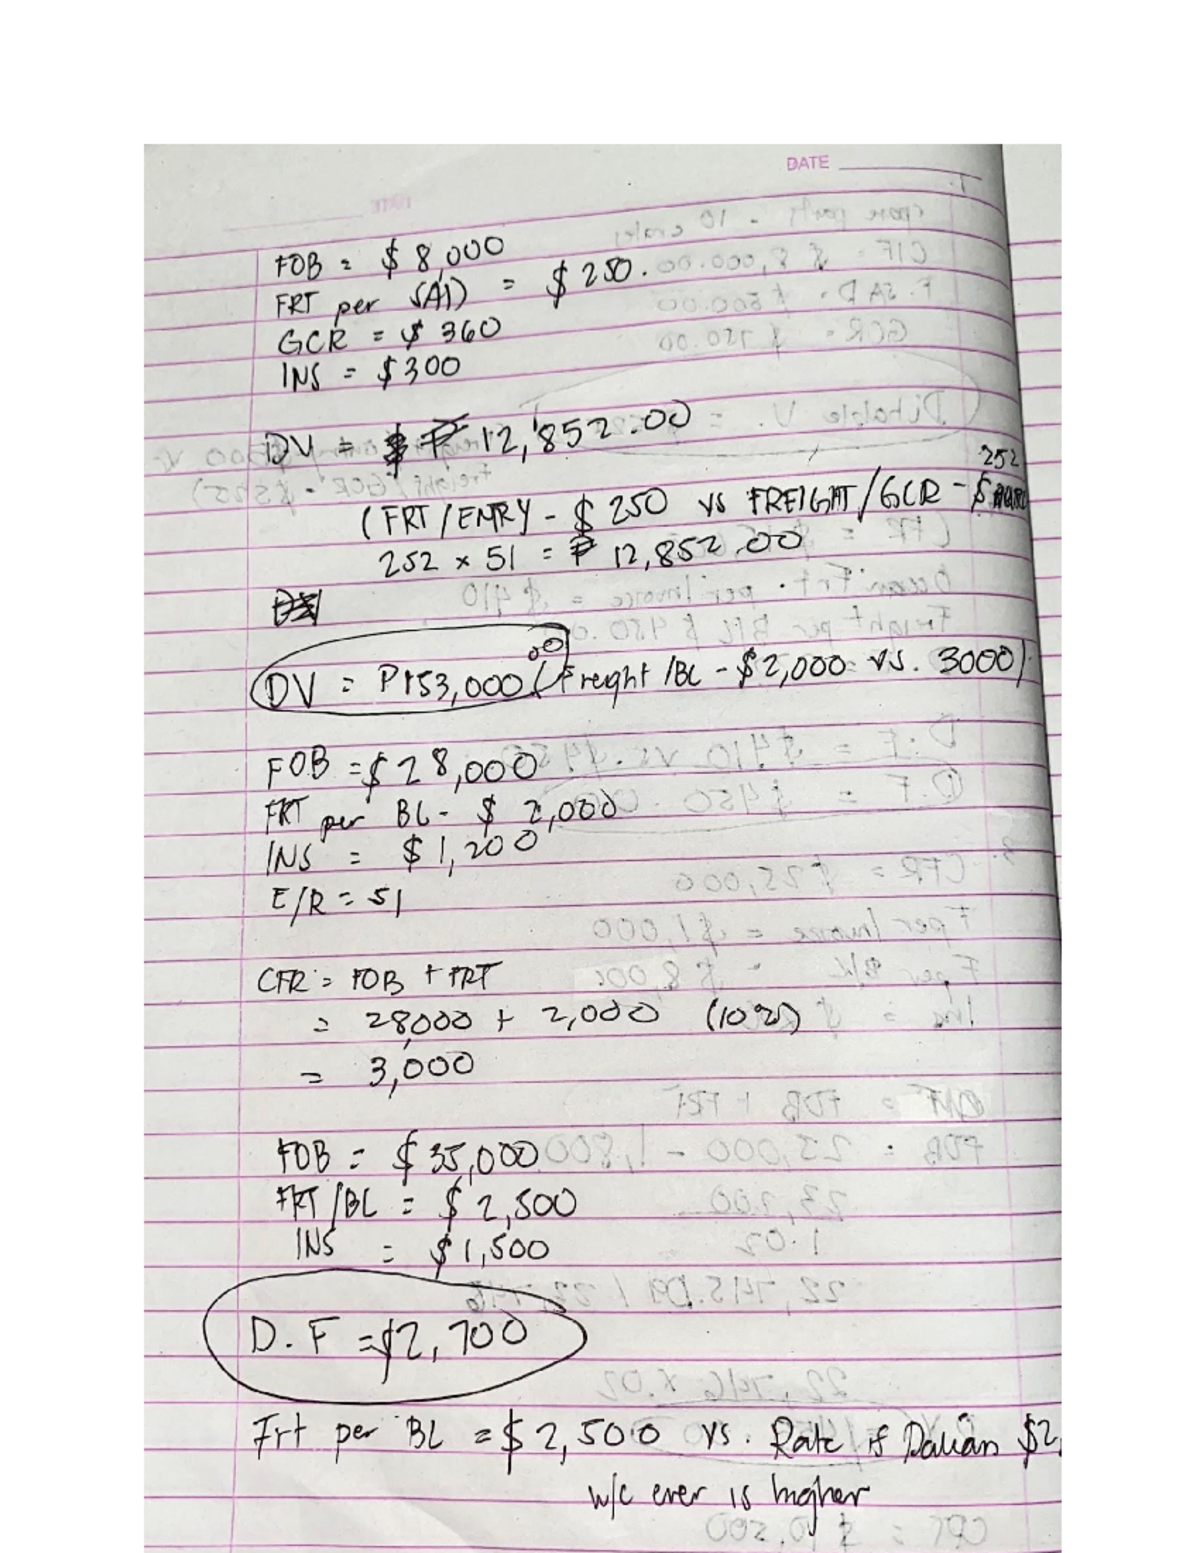 DATE
FOB = $ 8,000
FRT per SAD = $ 250.
GCR = $ 360
INS = $300
DV = 12,852.00
252
(FRT/ENTRY - $ 250 vs FREIGHT/GCR - $
252 x 51 = ₱ 12,852.00
DV = P153,000.00 (Freight /BL - $2,000 vs. 3000)
FOB = $ 28,000
FRT per BL - $ 2,000
INS = $ 1,200
E/R = 51
CFR = FOB + FRT
= 28,000 + 2,000 (10%)
= 3,000
FOB = $ 35,000
FRT/BL = $ 2,500
INS = $1,500
D.F = $2,700
Frt per BL = $ 2,500 vs. Rate if Dalian $2,
w/c ever is higher